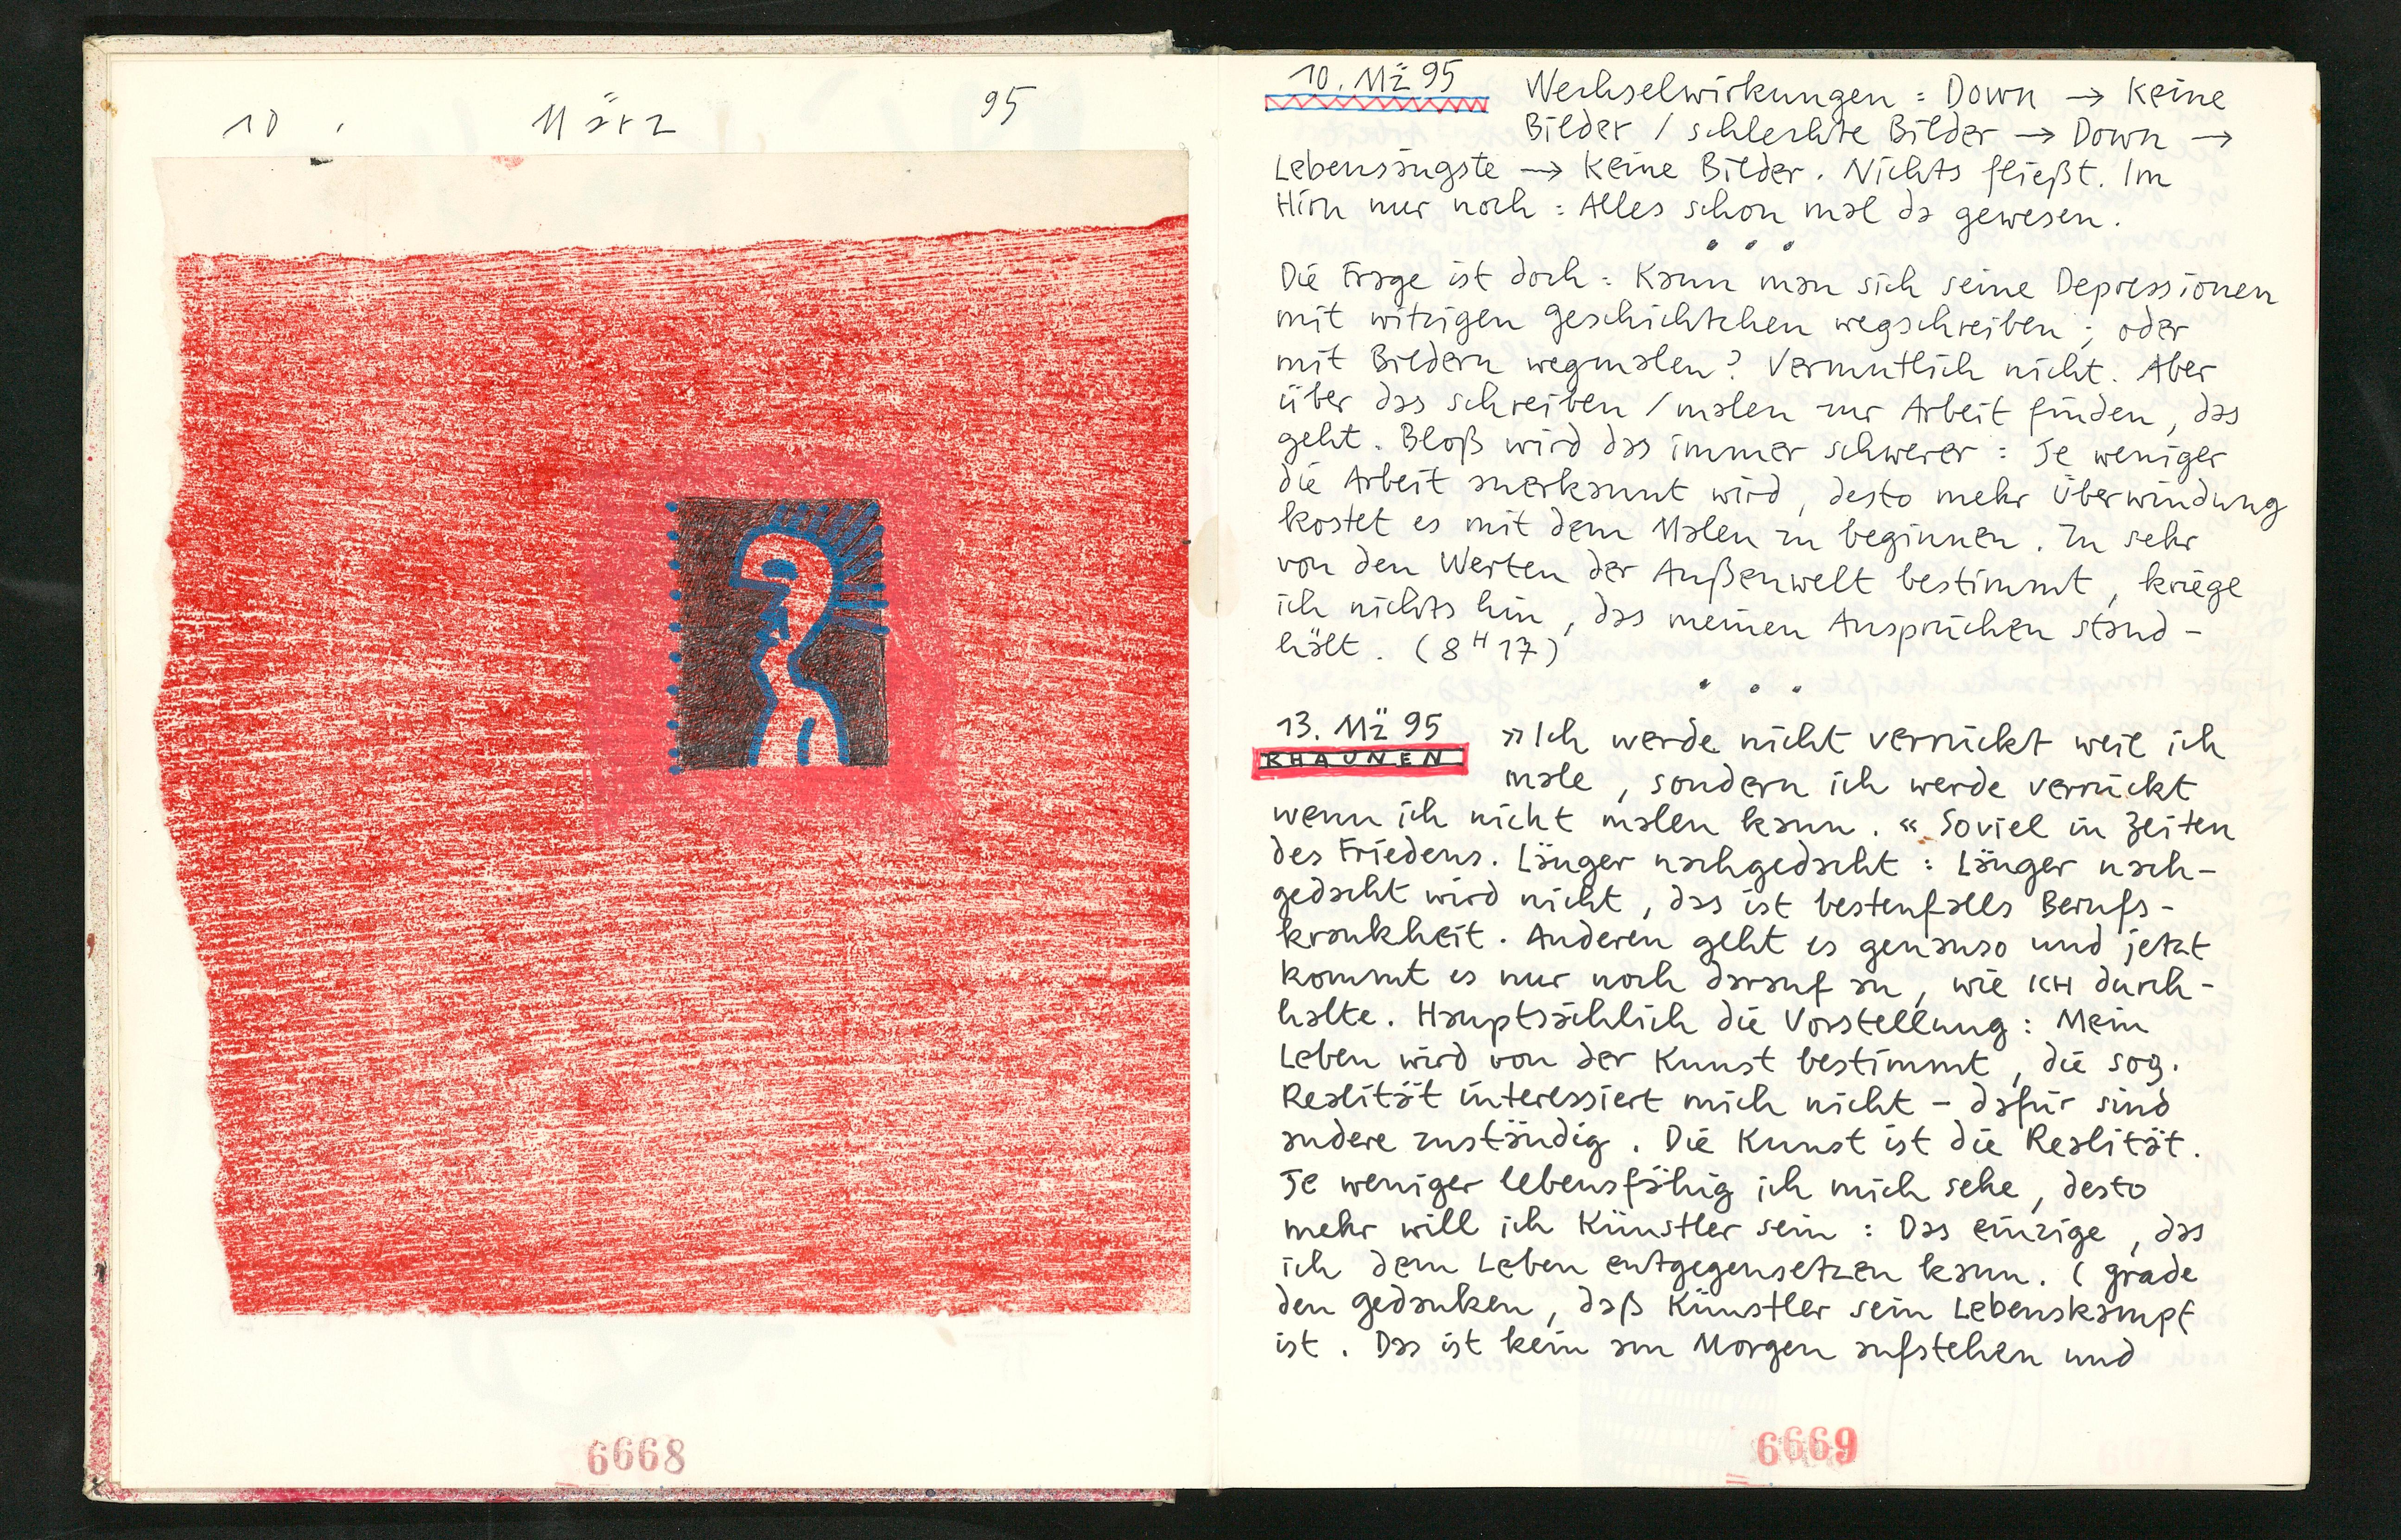 10. März 95
6668
10. Mä 95
Wechselwirkungen: Down → Keine
Bilder / schlechte Bilder → Down →
Lebensängste → Keine Bilder. Nichts fließt. Im
Hirn nur noch: Alles schon mal da gewesen.
• • •
Die Frage ist doch: Kann man sich seine Depressionen
mit witzigen Geschichtchen wegschreiben; oder
mit Bildern wegmalen? Vermutlich nicht. Aber
über das schreiben / malen zur Arbeit finden, das
geht. Bloß wird das immer schwerer: Je weniger
die Arbeit anerkannt wird, desto mehr Überwindung
kostet es mit dem Malen zu beginnen. Zu sehr
von den Werten der Außenwelt bestimmt, kriege
ich nichts hin, das meinen Ansprüchen stand-
hält. (8 H 17)
• • •
13. Mä 95
RHAUNEN
»Ich werde nicht verrückt weil ich
male, sondern ich werde verrückt
wenn ich nicht malen kann.« Soviel in Zeiten
des Friedens. Länger nachgedacht: Länger nach-
gedacht wird nicht, das ist bestenfalls Berufs-
krankheit. Anderen geht es genauso und jetzt
kommt es nur noch darauf an, wie ICH durch-
halte. Hauptsächlich die Vorstellung: Mein
Leben wird von der Kunst bestimmt, die sog.
Realität interessiert mich nicht – dafür sind
andere zuständig. Die Kunst ist die Realität.
Je weniger lebensfähig ich mich sehe, desto
mehr will ich Künstler sein: Das einzige, das
ich dem Leben entgegensetzen kann. (grade
den Gedanken, daß Künstler sein Lebenskampf
ist. Das ist kein am Morgen aufstehen und
6669